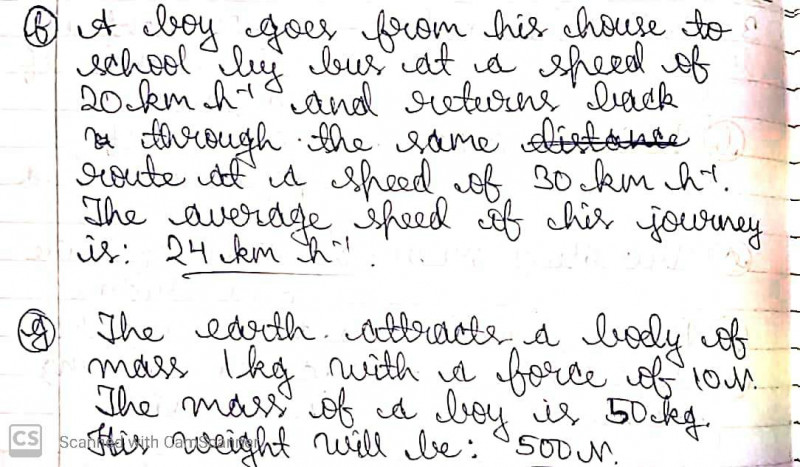 (f) A boy goes from his house to
school by bus at a speed of
20 km h⁻¹ and returns back
through the same distance
route at a speed of 30 km h⁻¹.
The average speed of his journey
is: 24 km h⁻¹.
(g) The earth attracts a body of
mass 1 kg with a force of 10 N.
The mass of a boy is 50 kg.
His weight will be: 500 N.
CS Scanned with CamScanner